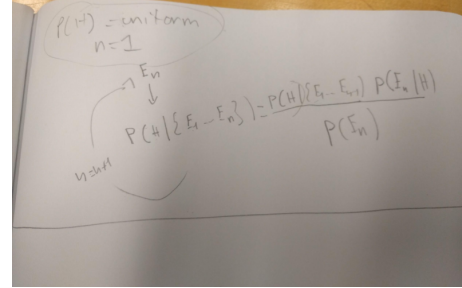 P(H) = uniform
n=1
E_n
P(H|{E_1 … E_n}) = P(H|{E_1 … E_{n-1}}) P(E_n|H)
P(E_n)
n=n+1